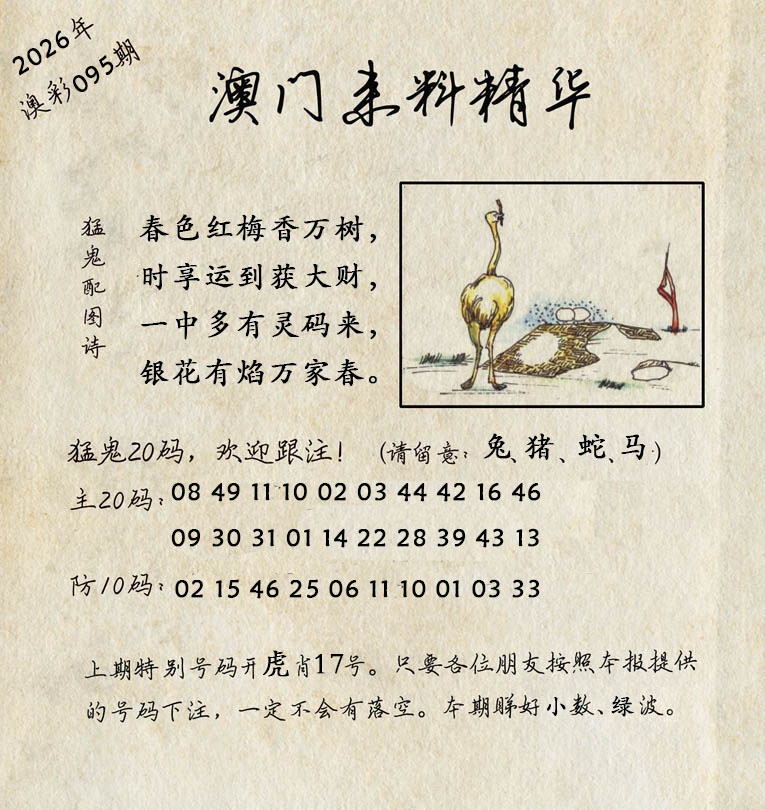 2026年
澳彩095期
澳门来料精华
猛鬼配图诗
春色红梅香万树，
时享运到获大财，
一中多有灵码来，
银花有焰万家春。
猛鬼20码，欢迎跟注！（请留意：兔、猪、蛇、马）
主20码：08 49 11 10 02 03 44 42 16 46
09 30 31 01 14 22 28 39 43 13
防10码：02 15 46 25 06 11 10 01 03 33
上期特别号码开虎肖17号。只要各位朋友按照本报提供
的号码下注，一定不会有落空。本期睇好小数、绿波。